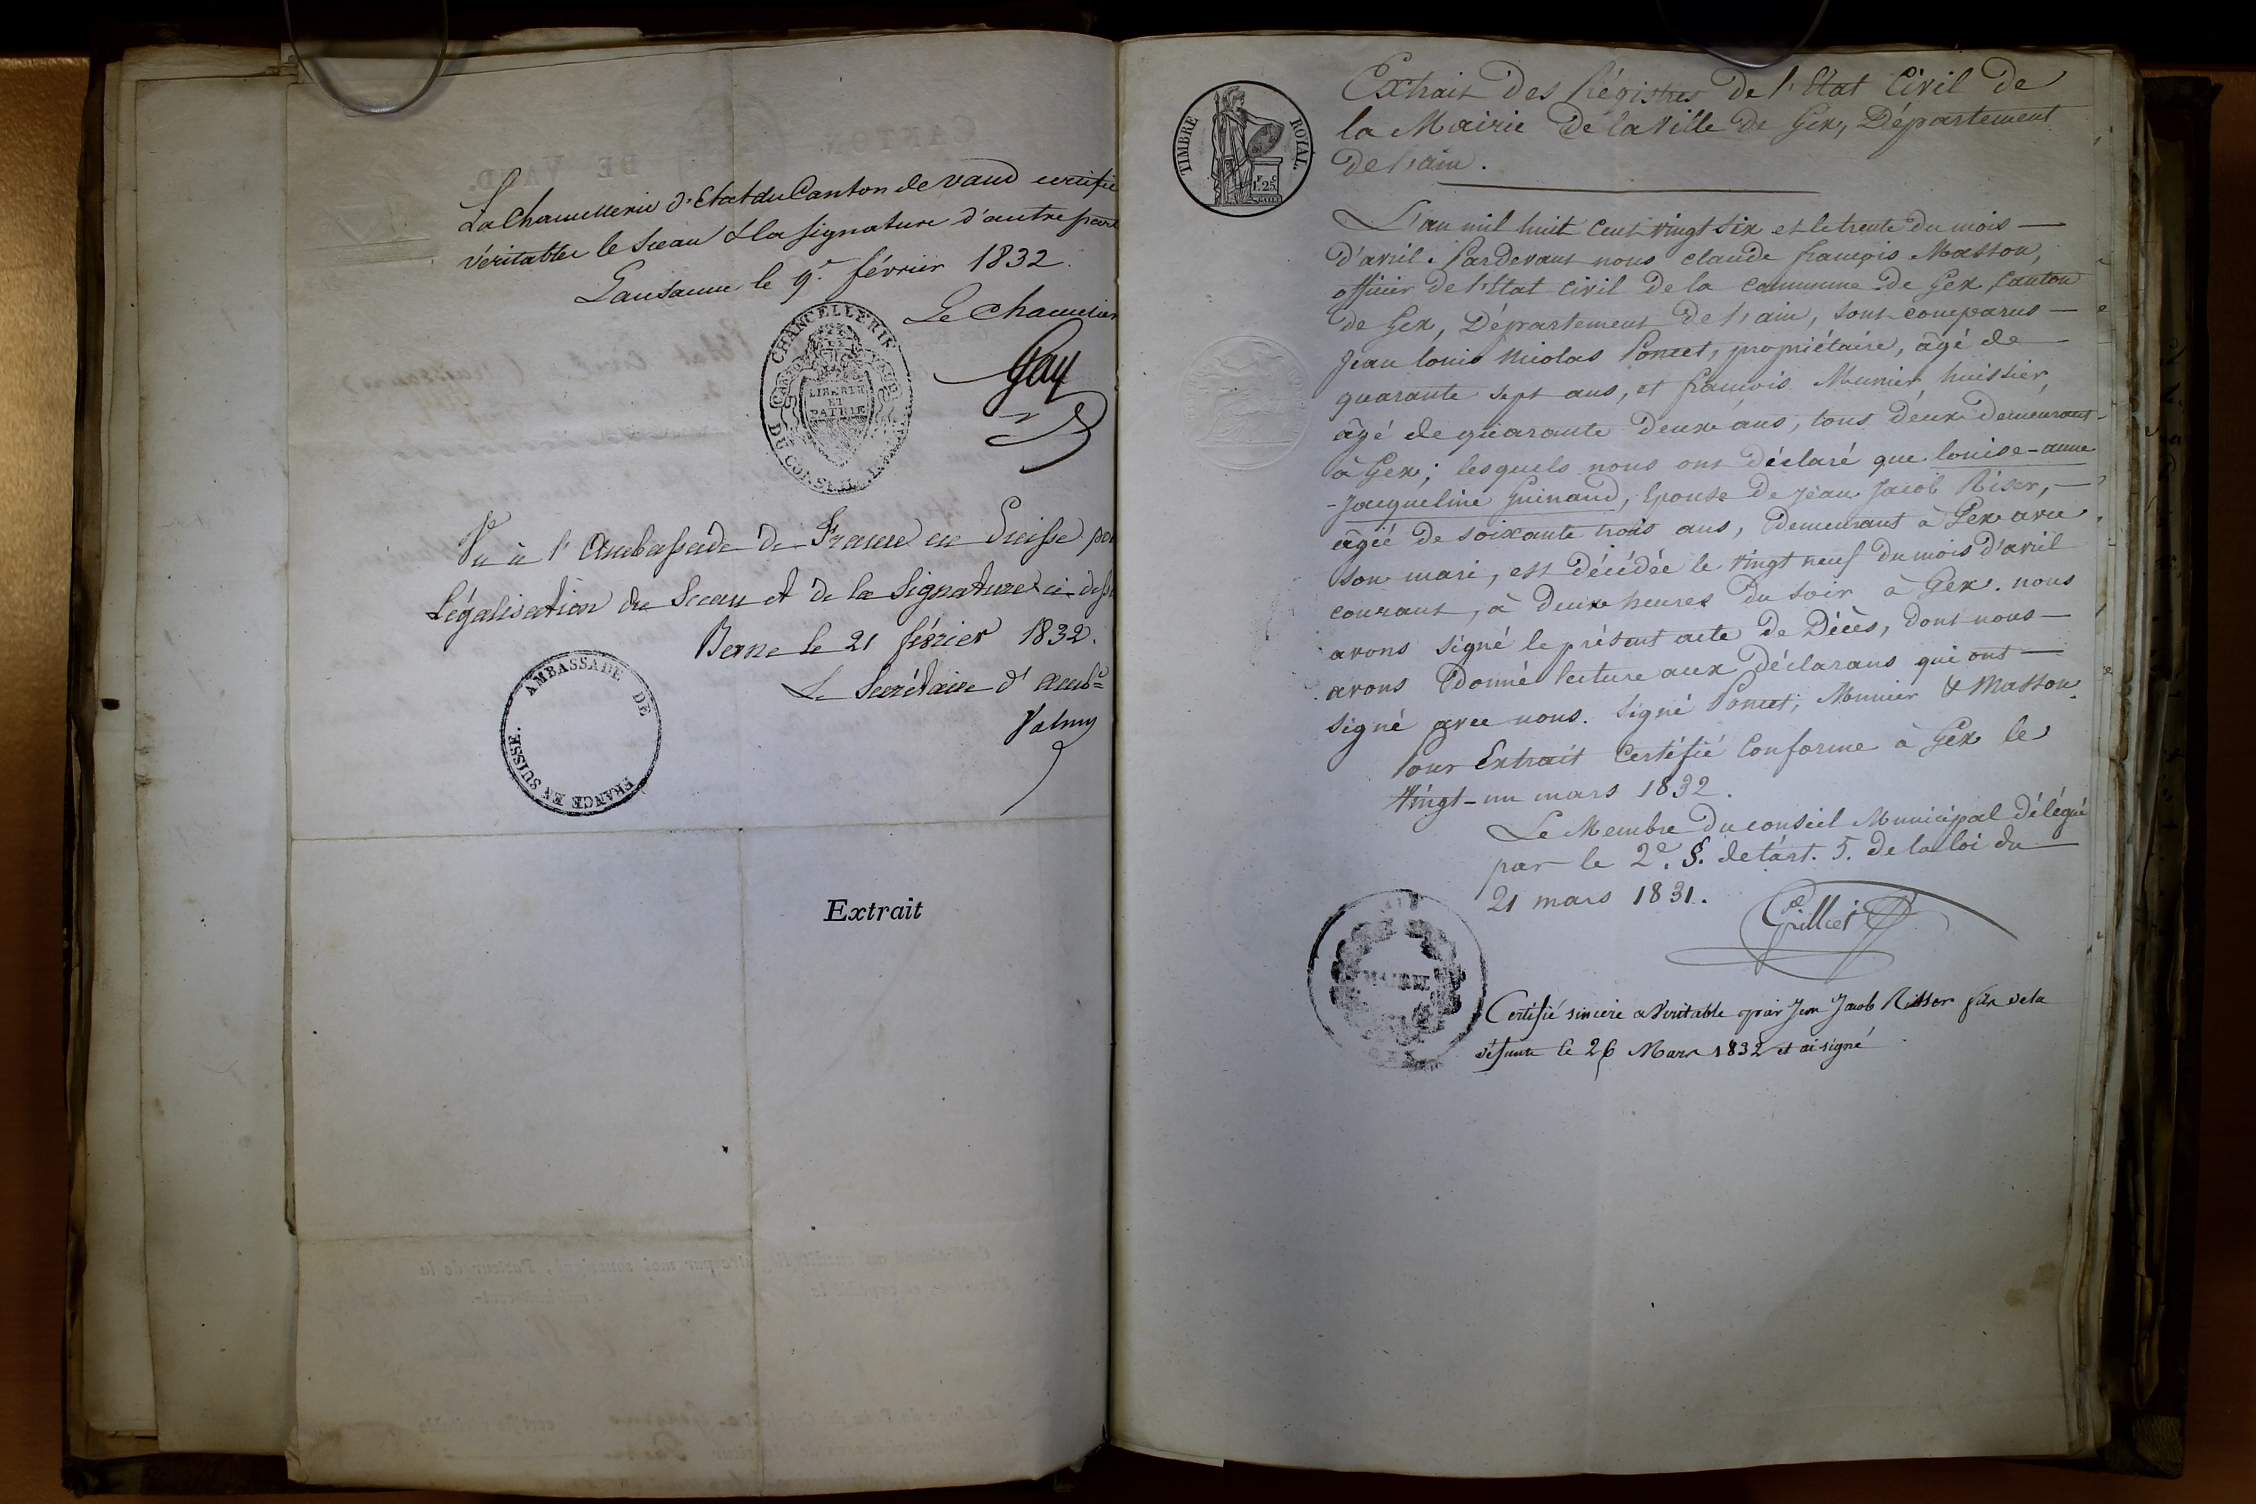 La Chancellerie d'Etat du Canton de Vaud certifie
véritables le sceau & la signature d'autre part
Lausanne le 9e. février 1832.
Le Chancelier
Gay
CHANCELLERIE
DU CONSEIL
CANTON
VAUD
LIBERTÉ
ET
PATRIE
Vu à l'Ambassade de France en Suisse pour
légalisation du Sceau et de la Signature ci-dessus
Berne le 21 février 1832.
Le Secrétaire d'amb.
Valmy
AMBASSADE DE
FRANCE EN SUISSE.
Extrait
TIMBRE ROYAL.
1F. 25C
Extrait des Régistres de l'Etat Civil de
la Mairie de la Ville de Gex, Département
de l'ain.
L'an mil huit cent vingt six et le trente du mois
d'avril. Pardevant nous claude françois Masson,
officier de l'Etat civil de la commune de Gex, Canton
de Gex, Département de l'ain, sont comparus
Jean louis Nicolas Poncet, propriétaire, âgé de
quarante sept ans, et françois Munier huissier,
âgé de quarante deux ans, tous deux demeurant
à Gex; lesquels nous ont déclaré que louise-anne
-Jacqueline Guinand, Epouse de Jean Jacob Riser,
agée de soixante trois ans, demeurant à Gex avec
son mari, est décédée le vingt neuf du mois d'avril
courant, à deux heures du soir à Gex. nous
avons signé le présent acte de Décès, dont nous
avons donné lecture aux déclarans qui ont
signé avec nous. Signé Poncet, Monnier & Masson.
Pour Extrait Certifié Conforme à Gex le
Vingt-un mars 1832.
Le Membre du conseil Municipal délégué
par le 2e. §. de l'art. 5. de la loi du
21 mars 1831.
Grilliet
MAIRIE
Certifié sincere & Veritable par Jean Jacob Risser fils de la
défunte le 26 Mars 1832 et ai signé